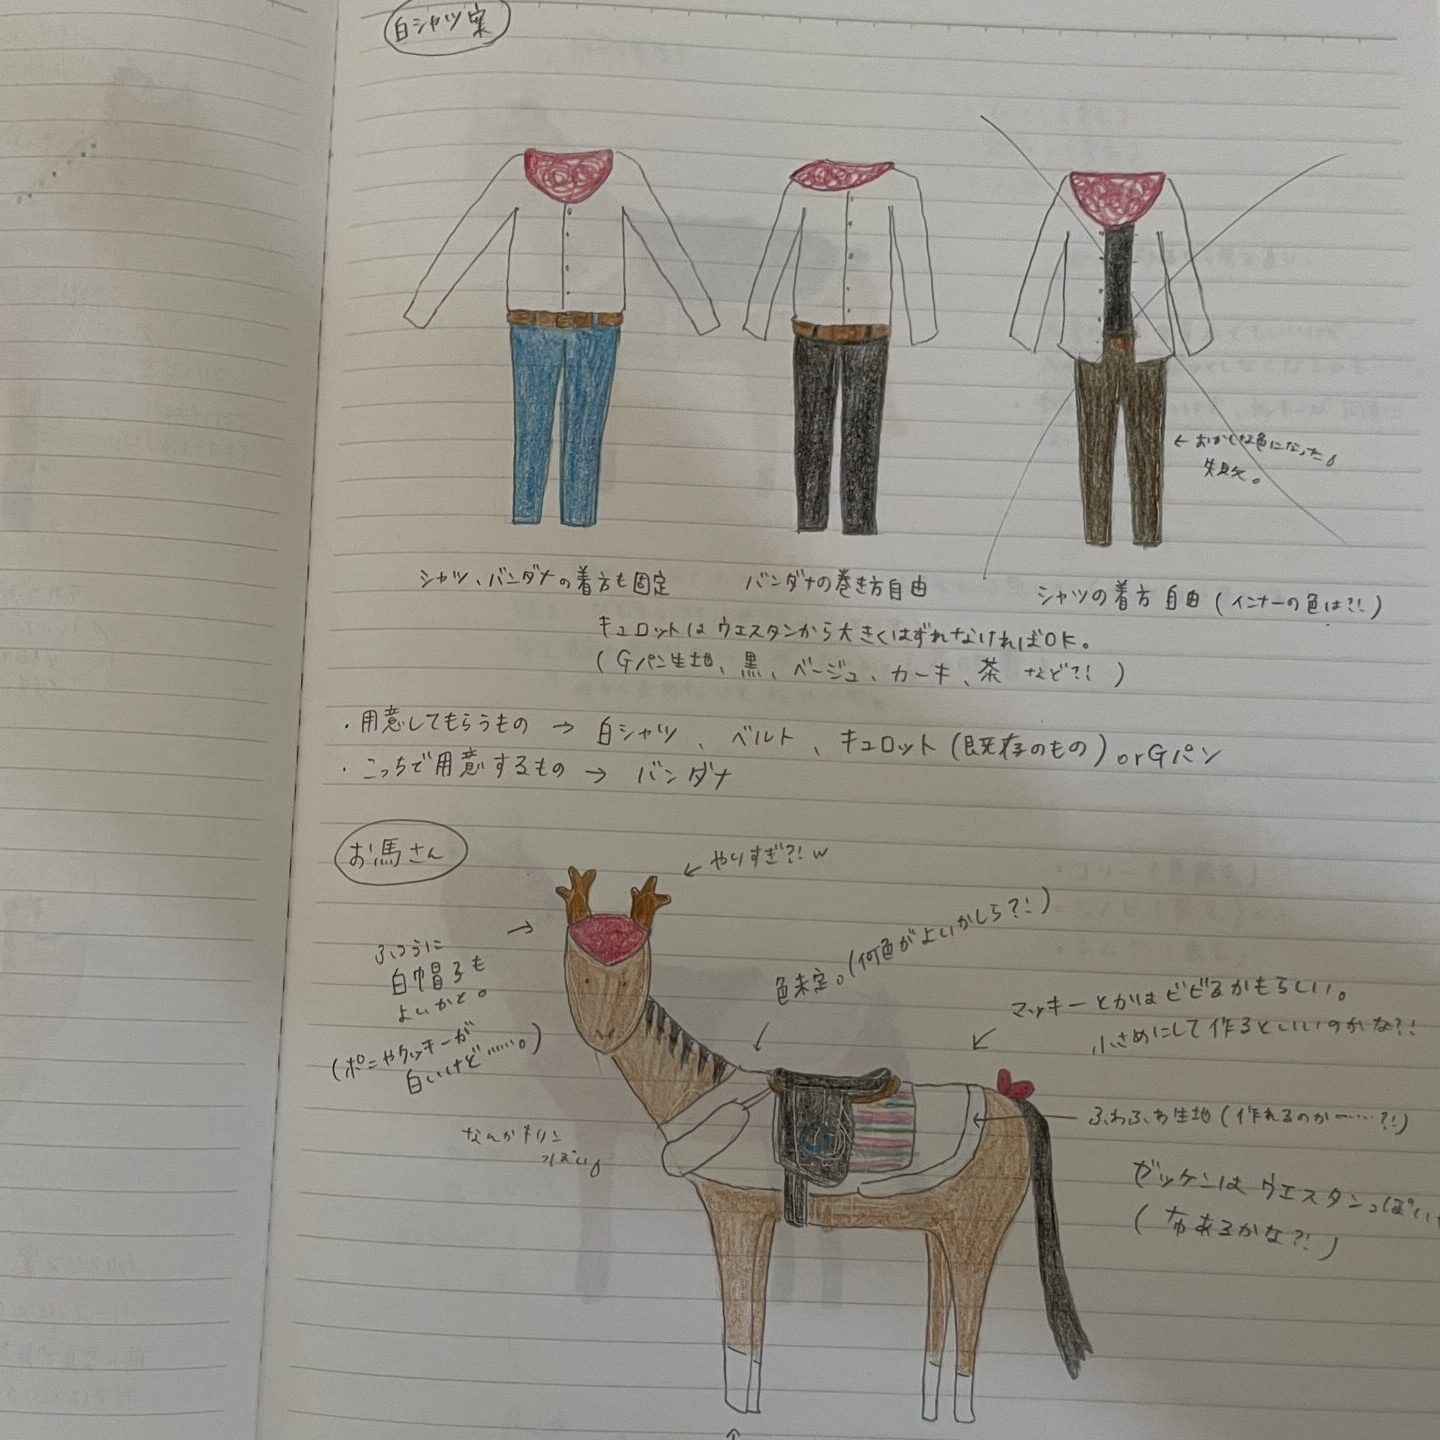 白シャツ案
←おかしな色になった。
失敗。
シャツ、バンダナの着方も固定
バンダナの巻き方自由
シャツの着方自由(インナーの色は?!)
キュロットはウエスタンから大きくはずれなければOK。
(Gパン生地、黒、ベージュ、カーキ、茶 など?!)
・用意してもらうもの → 白シャツ、ベルト、キュロット(既存のもの)orGパン
・こっちで用意するもの → バンダナ
お馬さん
←やりすぎ?!w
→
ふつうに
白帽子も
よいかと。
(ポニやクッキーが
白いけど……。)
色未定。(何色がよいかしら?!)
マッキーとかはビビるかもらしい。
小さめにして作るといいのかな?!
ふわふわ生地(作れるのか……?!)
なんかキリン
っぽい。
ゼッケンはウエスタンっぽい
(布あるかな?!)